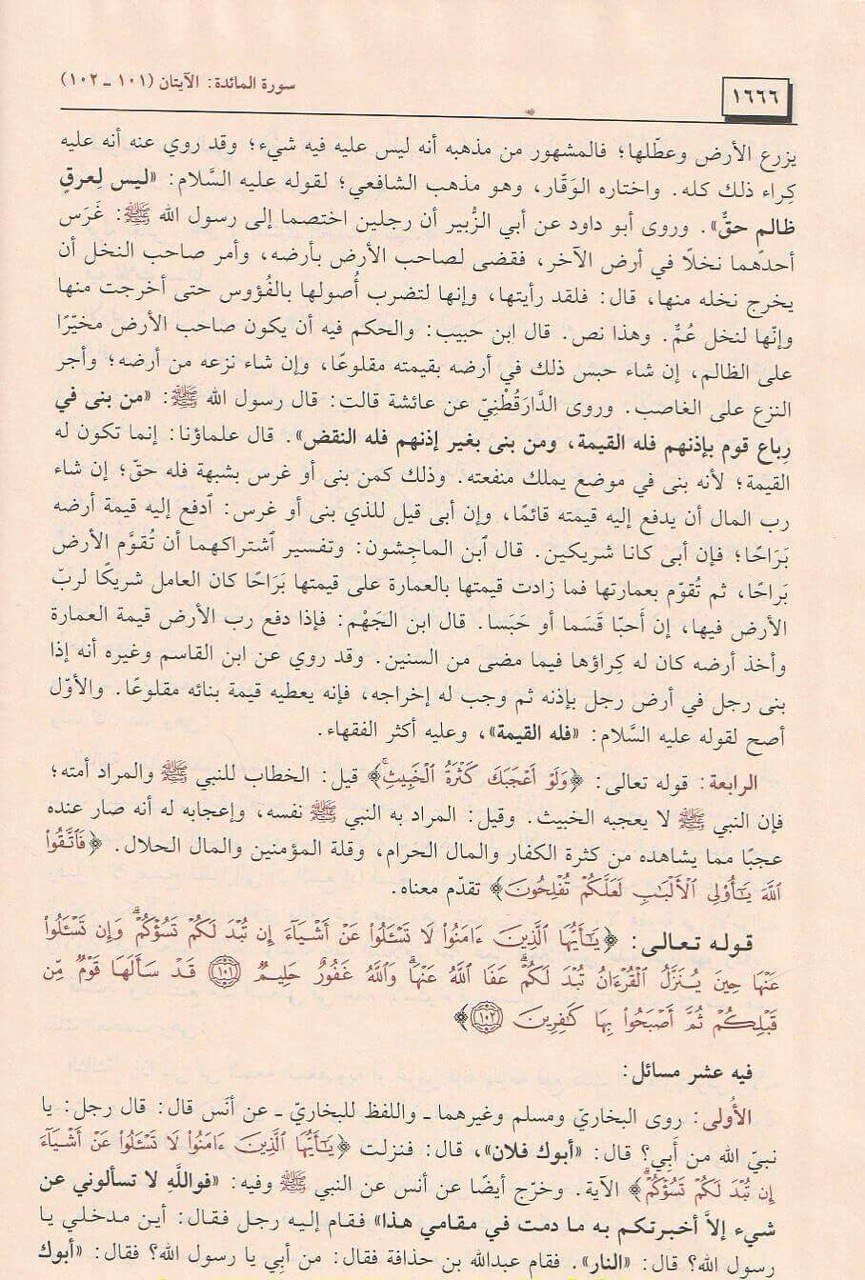 ١٦٦٦
سورة المائدة: الآيتان (١٠١ ـ ١٠٢)
يزرع الأرض وعطّلها؛ فالمشهور من مذهبه أنه ليس عليه فيه شيء؛ وقد روي عنه أنه عليه
كِراء ذلك كله. واختاره الوَقَار، وهو مذهب الشافعي؛ لقوله عليه السَّلام: «ليس لِعرقٍ
ظالمٍ حقٌّ». وروى أبو داود عن أبي الزُّبير أن رجلين اختصما إلى رسول الله ﷺ: غَرَس
أحدهما نخلًا في أرض الآخر، فقضى لصاحب الأرض بأرضه، وأمر صاحب النخل أن
يخرج نخله منها، قال: فلقد رأيتها، وإنها لتضرب أُصولها بالفُؤوس حتى أخرجت منها
وإنّها لنخل عُمٌّ. وهذا نص. قال ابن حبيب: والحكم فيه أن يكون صاحب الأرض مخيّرًا
على الظالم، إن شاء حبس ذلك في أرضه بقيمته مقلوعًا، وإن شاء نزعه من أرضه؛ وأجر
النزع على الغاصب. وروى الدَّارَقُطْنِيّ عن عائشة قالت: قال رسول الله ﷺ: «من بنى في
رِباع قوم بإذنهم فله القيمة، ومن بنى بغير إذنهم فله النقض». قال علماؤنا: إنما تكون له
القيمة؛ لأنه بنى في موضع يملك منفعته. وذلك كمن بنى أو غرس بشبهة فله حقّ؛ إن شاء
رب المال أن يدفع إليه قيمته قائمًا، وإن أبى قيل للذي بنى أو غرس: ٱدفع إليه قيمة أرضه
بَرَاحًا؛ فإن أبى كانا شريكين. قال ٱبن الماجِشون: وتفسير ٱشتراكهما أن تُقوَّم الأرض
بَراحًا، ثم تُقوّم بعمارتها فما زادت قيمتها بالعمارة على قيمتها بَرَاحًا كان العامل شريكًا لربّ
الأرض فيها، إن أحبّا قَسَما أو حَبَسا. قال ابن الجَهْم: فإذا دفع رب الأرض قيمة العمارة
وأخذ أرضه كان له كِراؤها فيما مضى من السنين. وقد روي عن ابن القاسم وغيره أنه إذا
بنى رجل في أرض رجل بإذنه ثم وجب له إخراجه، فإنه يعطيه قيمة بنائه مقلوعًا. والأوّل
أصح لقوله عليه السَّلام: «فله القيمة»، وعليه أكثر الفقهاء.
الرابعة: قوله تعالى: ﴿وَلَوْ أَعْجَبَكَ كَثْرَةُ ٱلْخَبِيثِ﴾ قيل: الخطاب للنبي ﷺ والمراد أمته؛
فإن النبي ﷺ لا يعجبه الخبيث. وقيل: المراد به النبي ﷺ نفسه، وإعجابه له أنه صار عنده
عجبًا مما يشاهده من كثرة الكفار والمال الحرام، وقلة المؤمنين والمال الحلال. ﴿فَٱتَّقُوا۟
ٱللَّهَ يَـٰٓأُو۟لِى ٱلْأَلْبَـٰبِ لَعَلَّكُمْ تُفْلِحُونَ﴾ تقدّم معناه.
قوله تعالى: ﴿يَـٰٓأَيُّهَا ٱلَّذِينَ ءَامَنُوا۟ لَا تَسْـَٔلُوا۟ عَنْ أَشْيَآءَ إِن تُبْدَ لَكُمْ تَسُؤْكُمْ وَإِن تَسْـَٔلُوا۟
عَنْهَا حِينَ يُنَزَّلُ ٱلْقُرْءَانُ تُبْدَ لَكُمْ عَفَا ٱللَّهُ عَنْهَا وَٱللَّهُ غَفُورٌ حَلِيمٌ ۝١٠١ قَدْ سَأَلَهَا قَوْمٌ مِّن
قَبْلِكُمْ ثُمَّ أَصْبَحُوا۟ بِهَا كَـٰفِرِينَ ۝١٠٢﴾
فيه عشر مسائل:
الأُولى: روى البخاريّ ومسلم وغيرهما ـ واللفظ للبخاريّ ـ عن أنَس قال: قال رجل: يا
نبيّ الله من أَبِي؟ قال: «أبوك فلان»، قال: فنزلت ﴿يَـٰٓأَيُّهَا ٱلَّذِينَ ءَامَنُوا۟ لَا تَسْـَٔلُوا۟ عَنْ أَشْيَآءَ
إِن تُبْدَ لَكُمْ تَسُؤْكُمْ﴾ الآية. وخرّج أيضًا عن أنس عن النبي ﷺ وفيه: «فواللَّهِ لا تسألوني عن
شيء إلاَّ أخبرتكم به ما دمت في مقامي هذا» فقام إليه رجل فقال: أين مدخلي يا
رسول الله؟ قال: «النار». فقام عبدالله بن حذافة فقال: من أبِي يا رسول الله؟ فقال: «أبوك